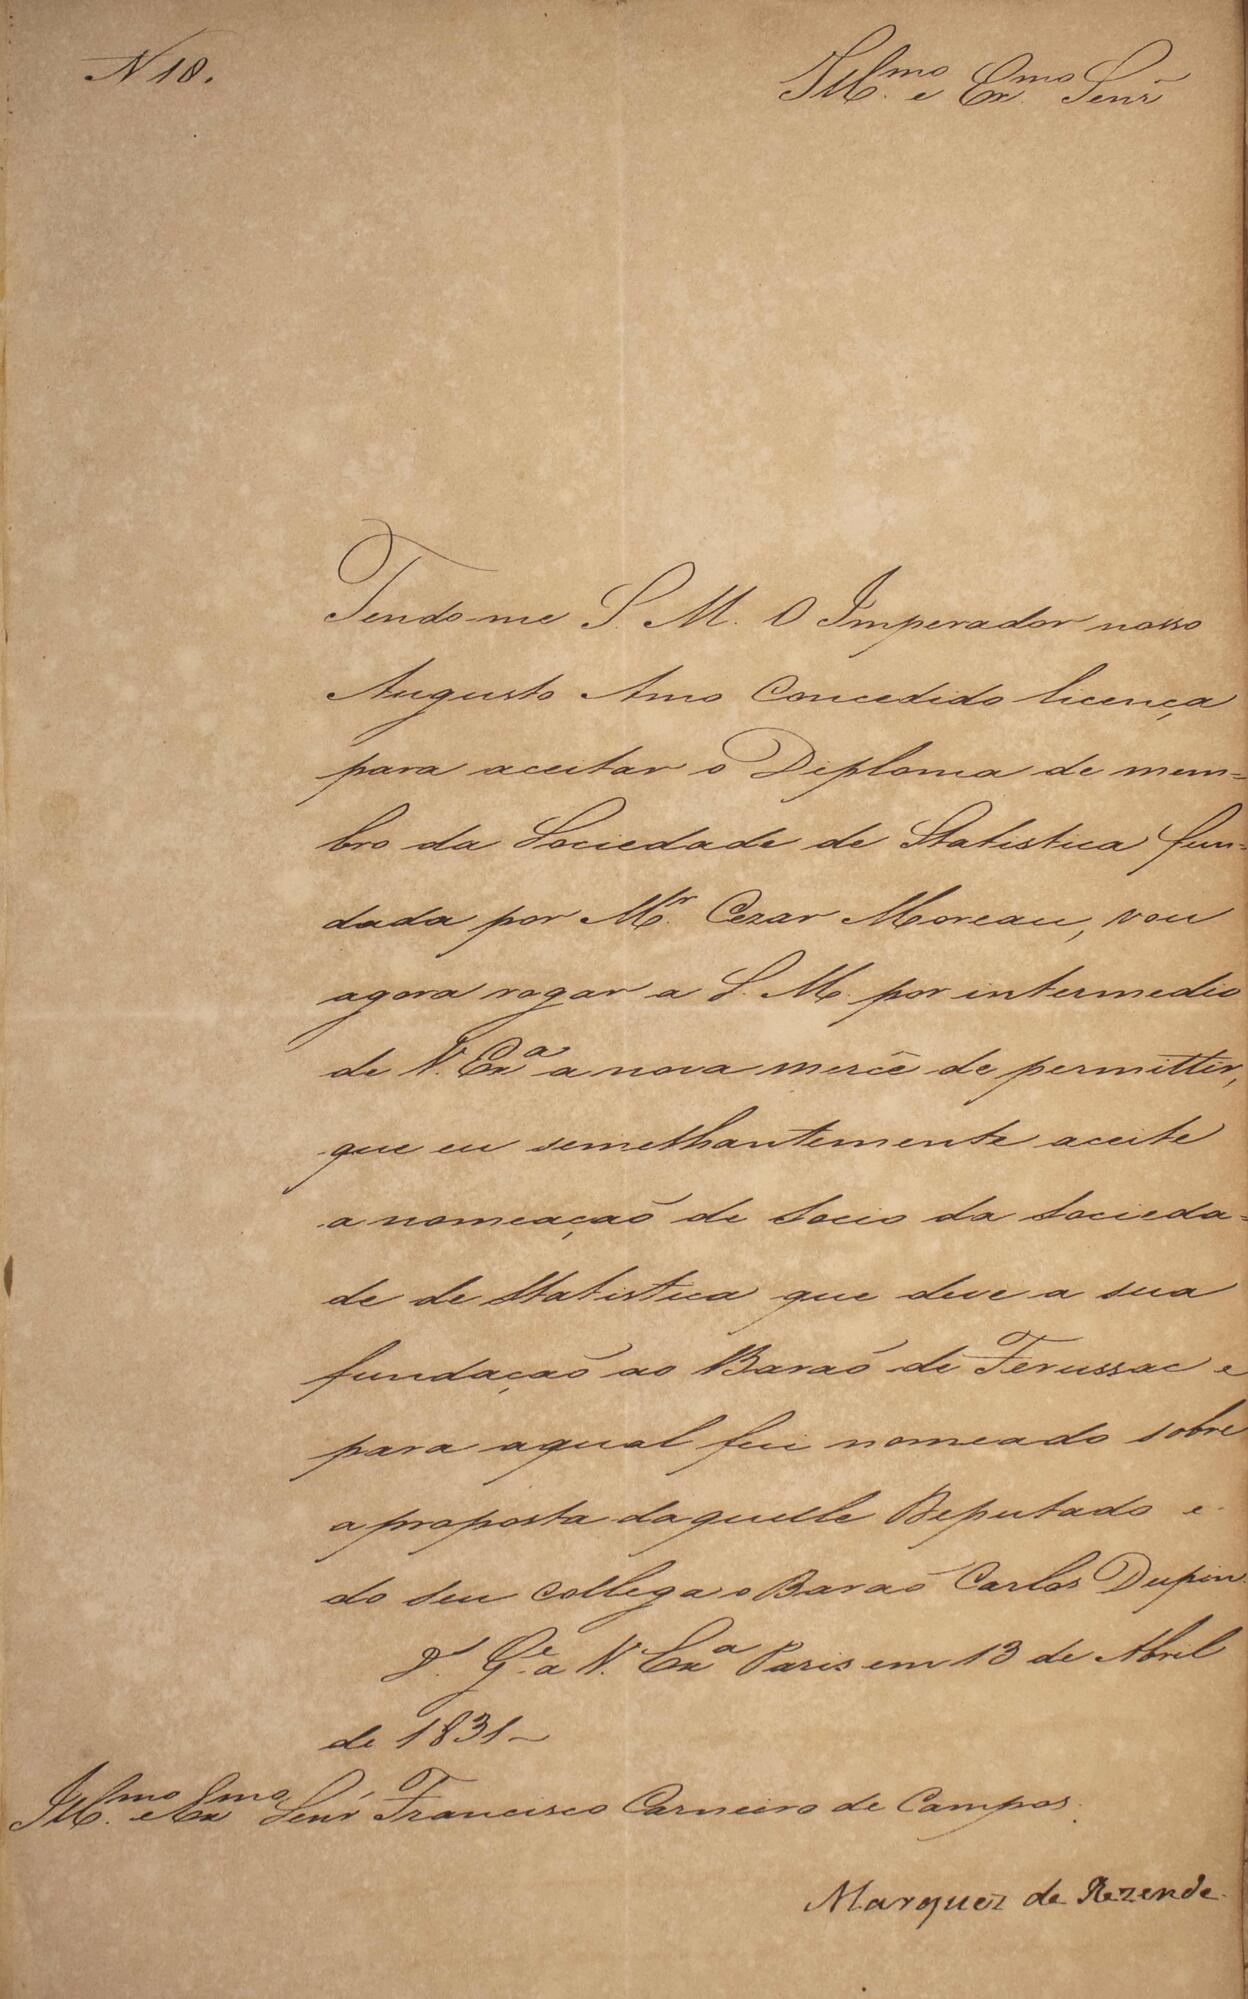 N 18.
Ill.mo e Ex.mo Senr̃
Tendo-me S. M. O Imperador nosso
Augusto Amo Concedido licença
para aceitar o Diploma de mem=
bro da Sociedade de Statistica fun=
dada por Mr. Cezar Moreau, vou
agora rogar a S. M. por intermedio
de V. Exa a nova mercê de permittir,
que eu semelhantemente aceite
a nomeação de Socio da Socieda=
de de Statistica que deve a sua
fundação ao Barão de Ferussac e
para aqual fui nomeado sobre
a proposta daquelle Deputado e
do seu collega o Barão Carlos Dupin.
D.s G.e a V. Exa Paris em 13 de Abril
de 1831_
Ill.mo e Ex.mo Senr Francisco Carneiro de Campos.
Marquez de Rezende.